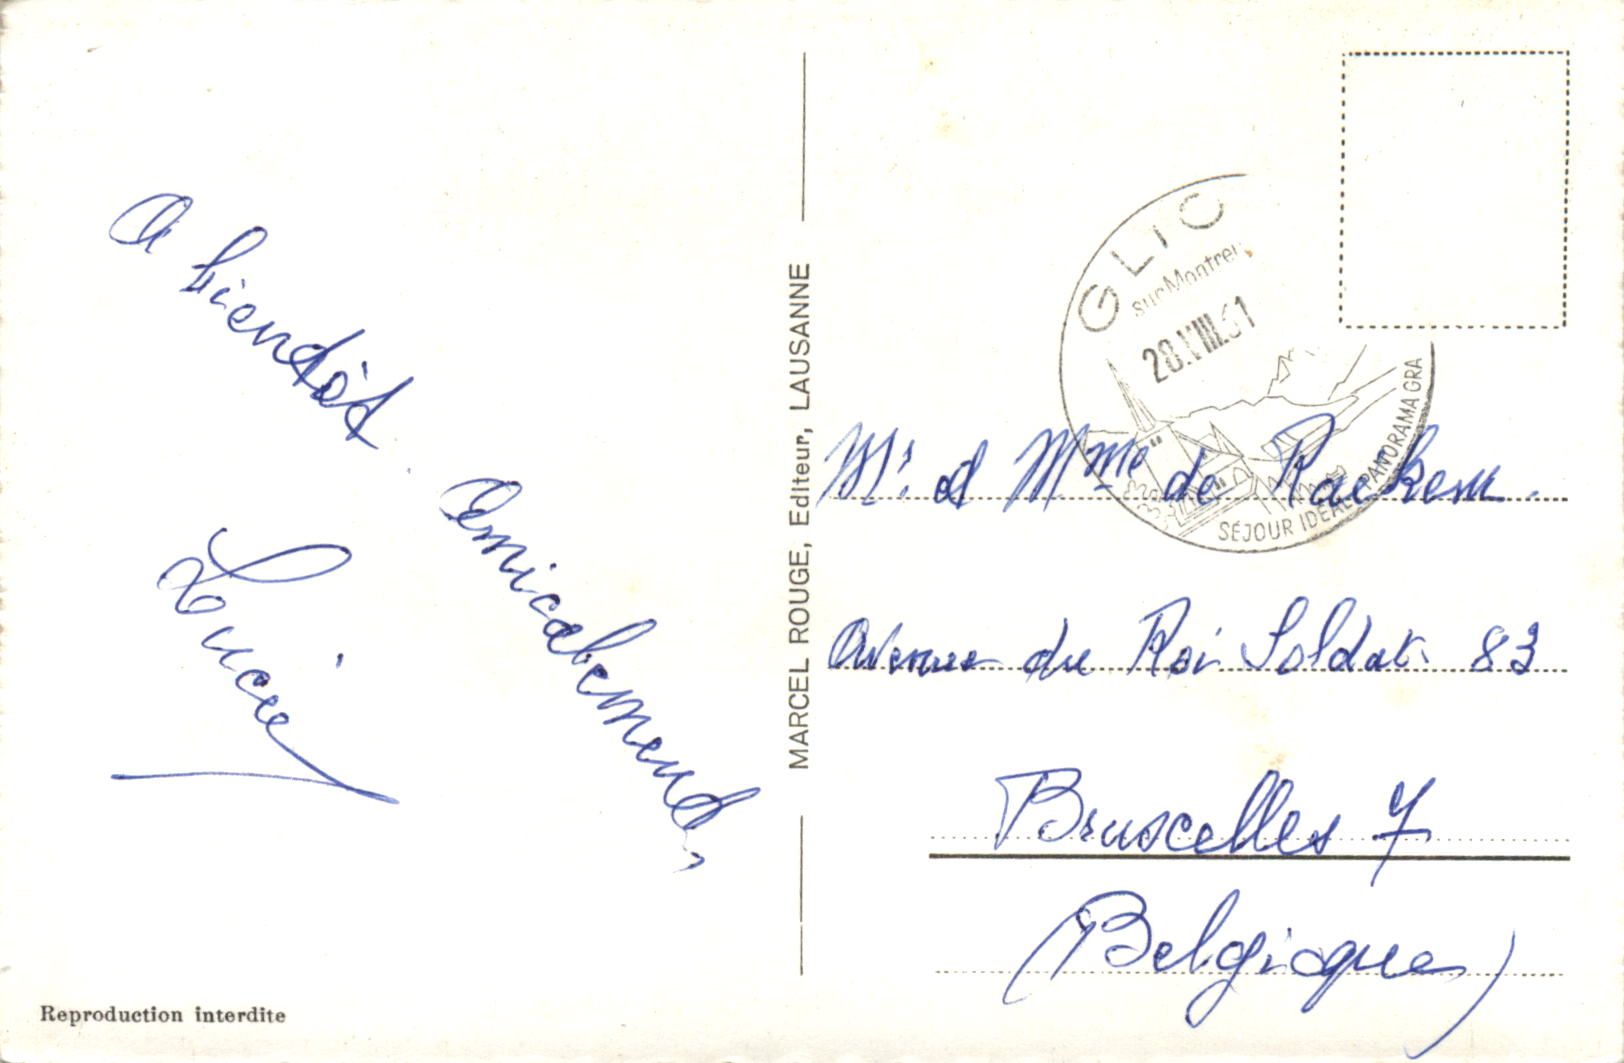 A bientôt.
Amicalement,
Lucie
MARCEL ROUGE, Editeur, LAUSANNE
GLIC
sur Montreu
28.VIII.61
SÉJOUR IDÉAL PANORAMA GRA
Mr. et Mme de Raekem.
Avenue du Roi Soldat. 83
Bruxelles 7
(Belgique)
Reproduction interdite